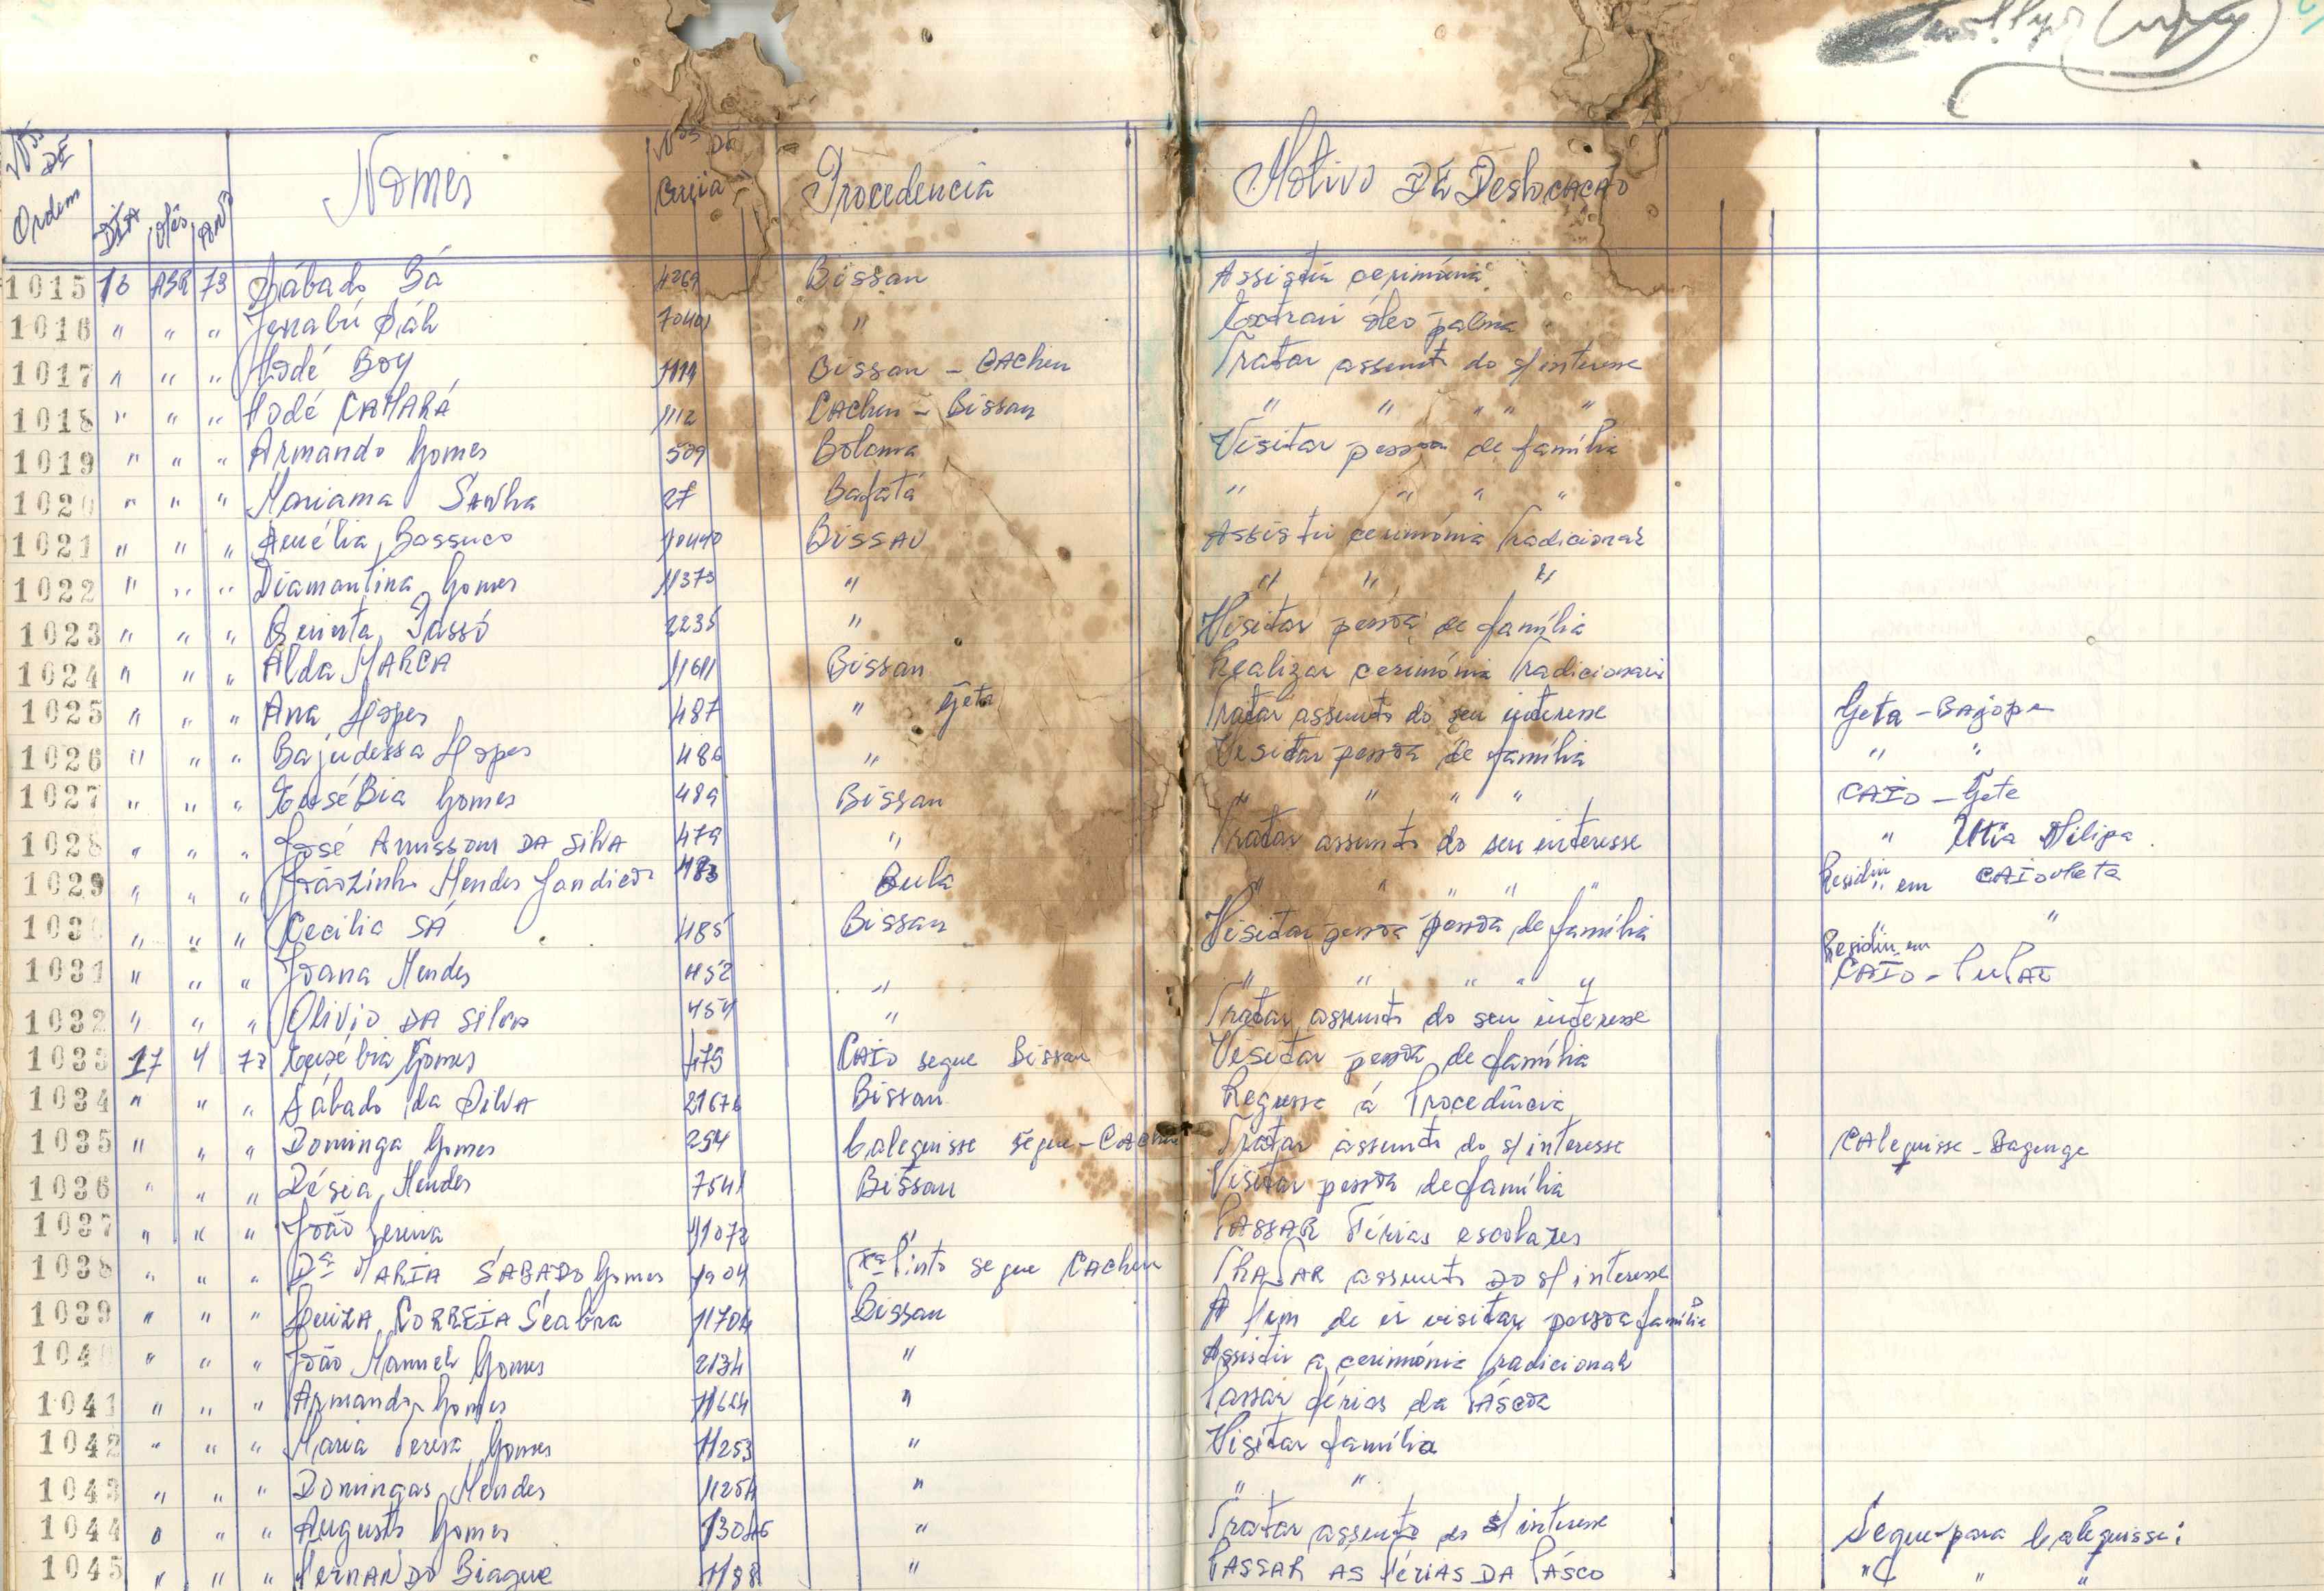 Nºs DE Ordem DIA Mês ANO Nomes Nºs DA Guia Procedencia Motivo DA DeslocACAO
1015 16 ABR 73 Sábado Sá 4269 Bissau Assistir cerimónia
1016 " " " Jenabú Sáh " Extrair óleo palma
1017 " " " Modé Boy 1111 Bissau - CAcheu Tratar assunto do s/ interesse
1018 " " " Modé CAMARÁ 1112 CAcheu - Bissau " " " " "
1019 " " " Armando Gomes 509 Bolama Visitar pessoa de família
1020 " " " Mariama SANha 27 Bafatá " " " "
1021 " " " Amélia Bassuco 10440 BissAu Assistir cerimónia Tradicional
1022 " " " Diamantina Gomes 11373 " " " "
1023 " " " Quinta Tassó 2235 " Visitar pessoa de família
1024 " " " Alda MARCA 11611 Bissau Realizar cerimónia Tradicionais
1025 " " " Ana Lopes 487 " Geta Tratar assunto do seu interesse Geta - BAjope
1026 " " " Bajudessa Lopes 486 " Visitar pessoa de família " "
1027 " " " EuséBia Gomes 489 Bissau " " " " CAIO - Gete
1028 " " " José DA SilVA 479 " Tratar assunto do seu interesse "
1029 " " " Joãozinho Mendes 483 Bula " " " " " Residir em
1030 " " " Cecilia SÁ 485 Bissau Visitar pessoa pessoa de família " "
1031 " " " Joana Mendes 452 " " " " " " Residir em CAIO -
1032 " " " Olivio DA SilVA 454 " Tratar assunto do seu interesse
1033 17 4 73 Eusébia Gomes 479 CAIO segue Bissau Visitar pessoa de família
1034 " " " Sábado da SilVA 21676 Bissau Regressa á Procedência
1035 " " " Dominga Gomes 254 Calequisse segue - CAcheu Tratar assunto do s/ interesse CAlequisse - Bagenge
1036 " " " Mendes 7541 Bissau Visitar pessoa de família
1037 " " " João Pereira 11072 " PASSAR Férias escolares
1038 " " " Dª MARIA SÁBADO Gomes 1904 segue CAcheu TRATAR assunto DO s/ interesse
1039 " " " Luiza CORREIA Seabra 11704 Bissau A fim de ir visitar pessoa família
1040 " " " João Manuel Gomes 2134 " Assistir a cerimónia Tradicional
1041 " " " Armando Gomes 11624 " Passar férias da PÁscoa
1042 " " " Maria Teresa Gomes 11253 " Visitar família
1043 " " " Domingas Mendes 11254 " " "
1044 " " " Augusto Gomes " Tratar assunto do s/ interesse Segue para Calequisse:
1045 " " " FernANDO Biague 1188 " PASSAR AS FériAS DA PÁSCO " " "